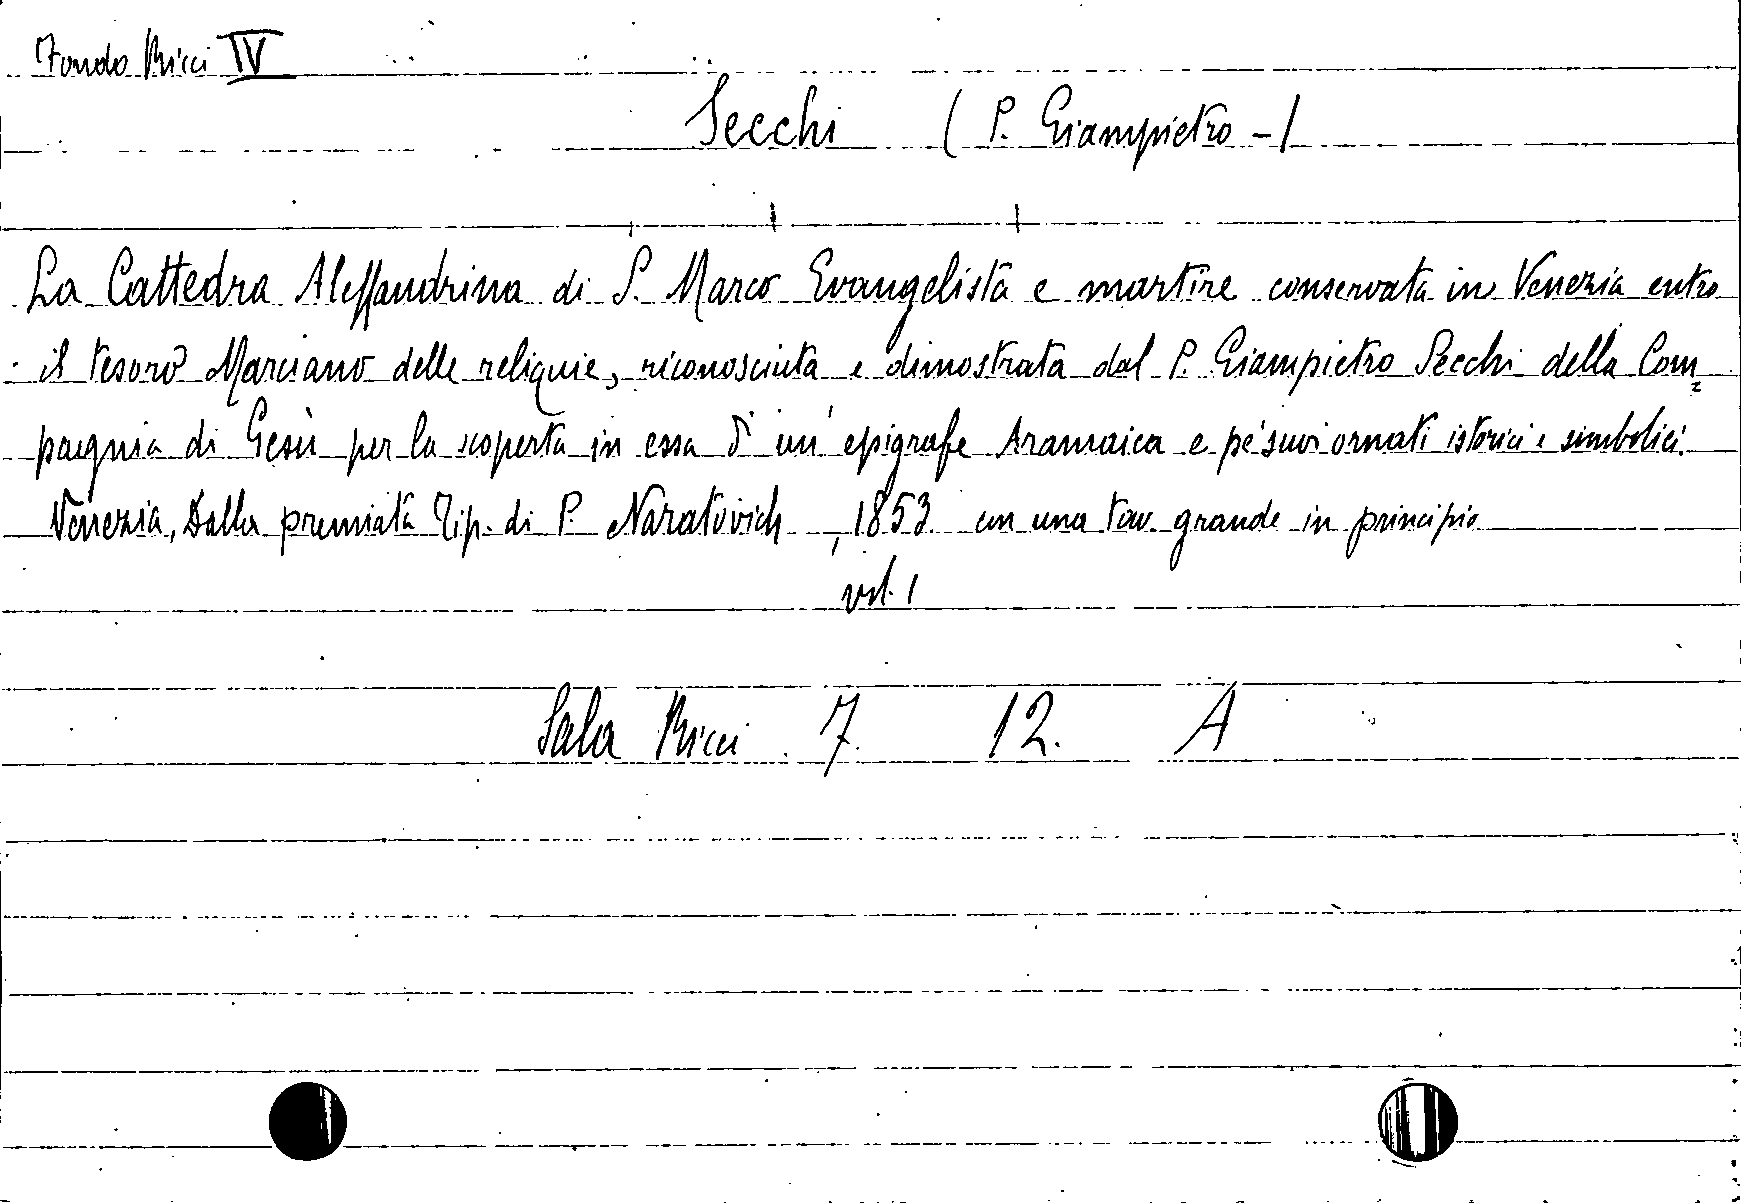 Fondo Ricci IV
Secchi ( P. Giampietro - )
La Cattedra Alessandrina di S. Marco Evangelista e martire conservata in Venezia entro
il tesoro Marciano delle reliquie, riconosciuta e dimostrata dal P. Giampietro Secchi della Com=
pagnia di Gesù per la scoperta in essa d'un'epigrafe Aramaica e pe' suoi ornati istorici e simbolici.
Venezia, Dalla premiata Tip. di P. Naratovich, 1853 con una tav. grande in principio
vol. 1
Sala Ricci. 7. 12. A